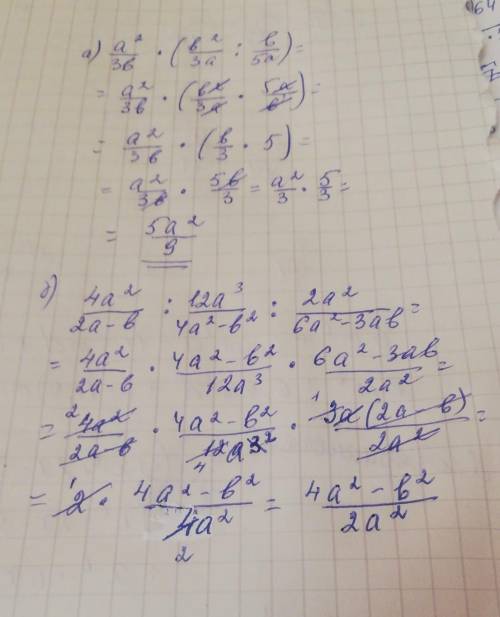 а) a²/3b · (b²/3a : b/5a) =
= a²/3b · (b²/3a · 5a/b) =
= a²/3b · (b/3 · 5) =
= a²/3b · 5b/3 = a²/3 · 5/3 =
= 5a²/9
б) 4a²/2a-b : 12a³/4a²-b² : 2a²/6a²-3ab =
= 4a²/2a-b · 4a²-b²/12a³ · 6a²-3ab/2a² =
= 4a²/2a-b · 4a²-b²/12a³ · 3a(2a-b)/2a² =
= 2 · 4a²-b²/4a² = 4a²-b²/2a²